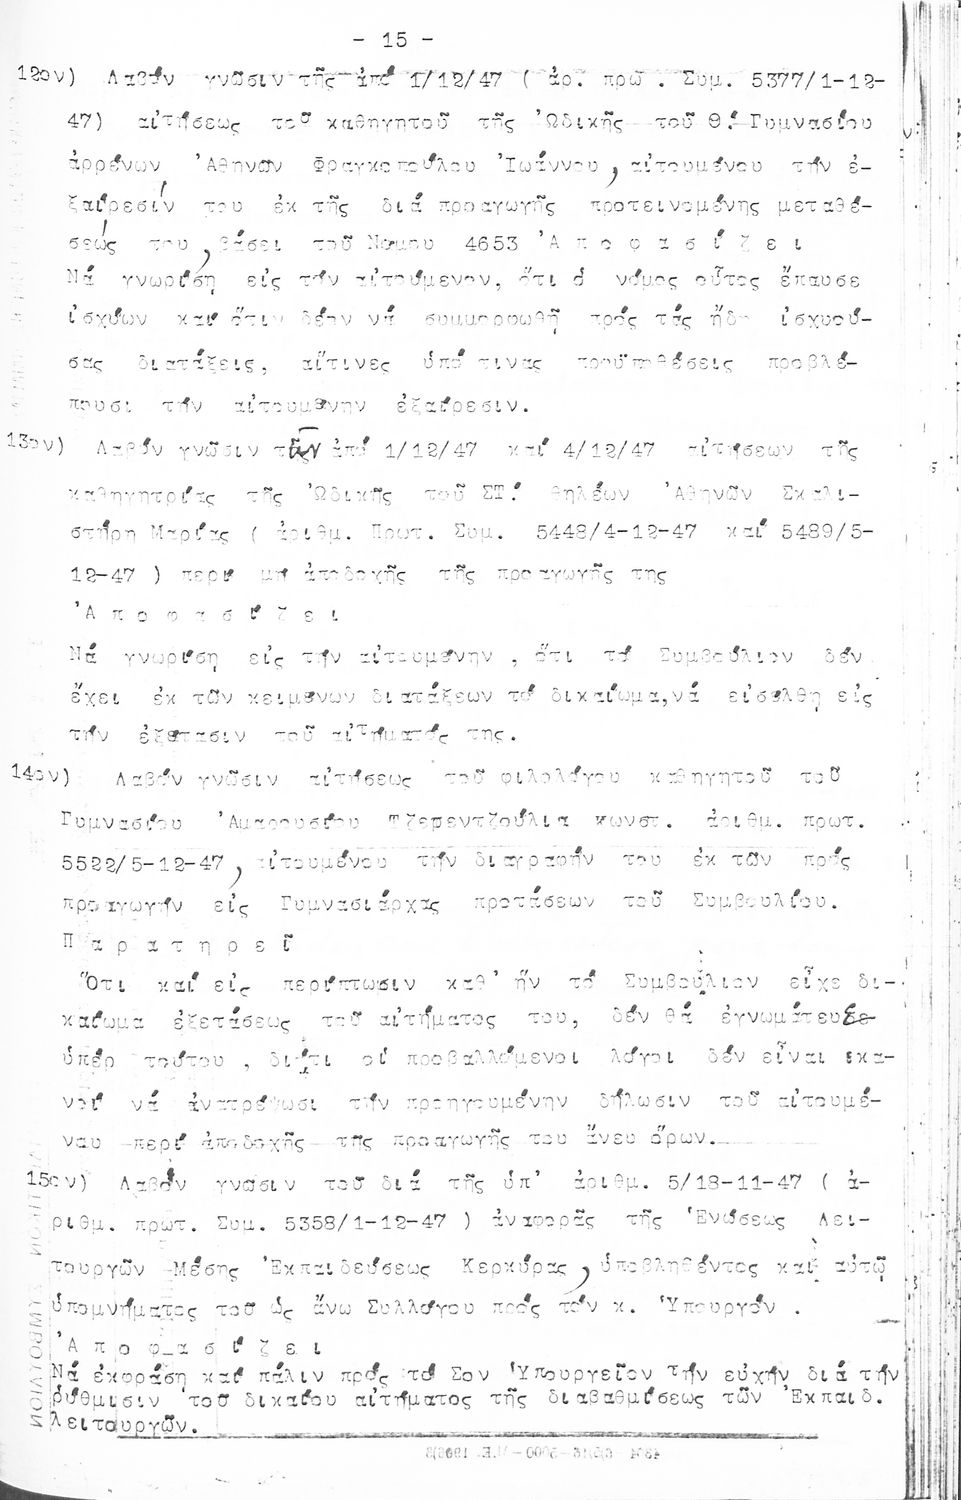 - 15 -
12ον) Λαβόν γνῶσιν τῆς ἀπό 1/12/47 ( ἀρ. πρω . Συμ. 5377/1-12-
47) αἰτήσεως τοῦ καθηγητοῦ τῆς Ὠδικῆς τοῦ Θ! Γυμνασίου
ἀρρένων Ἀθηνῶν Φραγκοπούλου Ἰωάννου, αἰτουμένου τήν ἐ-
ξαίρεσίν του ἐκ τῆς διά προαγωγῆς προτεινομένης μεταθέ-
σεώς του, βάσει τοῦ Νομου 4653 Ἀ π ο φ α σ ί ζ ε ι
Νά γνωρίση εἰς τόν αἰτούμενον, ὅτι ὁ νόμος οὗτος ἔπαυσε
ἰσχύων καί ὅτι δέον νά συμμορφωθῆ πρός τάς ἤδη ἰσχυού-
σας διατάξεις, αἵτινες ὑπό τινας προϋποθέσεις προβλέ-
πουσι τήν αἰτουμένην ἐξαίρεσιν.
13ον) Λαβόν γνῶσιν τῶν ἀπό 1/12/47 καί 4/12/47 αἰτήσεων τῆς
καθηγητρίας τῆς Ὠδικῆς τοῦ ΣΤ! θηλέων Ἀθηνῶν Σκαλι-
στήρη Μαρίας ( ἀριθμ. Πρωτ. Συμ. 5448/4-12-47 καί 5489/5-
12-47 ) περί μή ἀποδοχῆς τῆς προαγωγῆς της
Ἀ π ο φ α σ ί ζ ε ι
Νά γνωρίση εἰς τήν αἰτουμένην , ὅτι τό Συμβούλιον δέν
ἔχει ἐκ τῶν κειμένων διατάξεων τό δικαίωμα,νά εἰσέλθη εἰς
τήν ἐξέτασιν τοῦ αἰτήματός της.
14ον) Λαβόν γνῶσιν αἰτήσεως τοῦ φιλολόγου καθηγητοῦ τοῦ
Γυμνασίου Ἀμαρουσίου Τζεμεντζούλια Κωνστ. ἀριθμ. πρωτ.
5522/5-12-47, αἰτουμένου τήν διαγραφήν του ἐκ τῶν πρός
προαγωγήν εἰς Γυμνασιάρχας προτάσεων τοῦ Συμβουλίου.
Π α ρ α τ η ρ ε ῖ
Ὅτι καί εἰς περίπτωσιν καθ' ἥν τό Συμβούλιον εἶχε δι-
καίωμα ἐξετάσεως τοῦ αἰτήματος του, δέν θά ἐγνωμάτευσε
ὑπέρ τούτου , διότι οἱ προβαλλόμενοι λόγοι δέν εἶναι ἱκα-
νοί νά ἀνατρέψωσι τήν προηγουμένην δήλωσιν τοῦ αἰτουμέ-
νου περί ἀποδοχῆς τῆς προαγωγῆς του ἄνευ ὅρων.
15ον) Λαβόν γνῶσιν τοῦ διά τῆς ὑπ' ἀριθμ. 5/18-11-47 ( ἀ-
ριθμ. πρωτ. Συμ. 5358/1-12-47 ) ἀναφορᾶς τῆς Ἑνώσεως Λει-
τουργῶν Μέσης Ἐκπαιδεύσεως Κερκύρας, ὑποβληθέντος καί αὐτῷ
ὑπομνήματος τοῦ ὡς ἄνω Συλλόγου πρός τόν κ. Ὑπουργόν .
Ἀ π ο φ α σ ί ζ ε ι
Νά ἐκφράση καί πάλιν πρός τό Σον Ὑπουργεῖον τήν εὐχήν διά τήν
ρύθμισιν τοῦ δικαίου αἰτήματος τῆς διαβαθμίσεως τῶν Ἐκπαιδ.
λειτουργῶν.